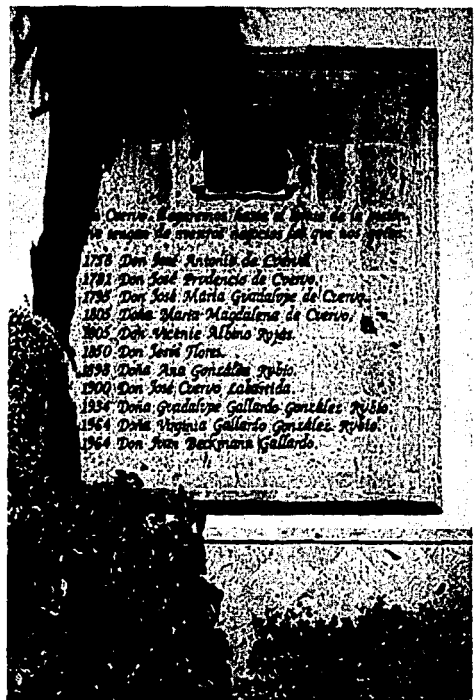 Cuervo.
1758 Don José Antonio de Cuervo.
1781 Don José Prudencio de Cuervo.
1795 Don José María Guadalupe de Cuervo.
1805 Doña María Magdalena de Cuervo.
1805 Don Vicente Albino Rojas.
1850 Don Jesús Flores.
1898 Doña Ana González Rubio.
1900 Don José Cuervo Labastida.
1934 Doña Guadalupe Gallardo González Rubio.
1964 Doña Virginia Gallardo González Rubio.
1964 Don Juan Beckmann Gallardo.